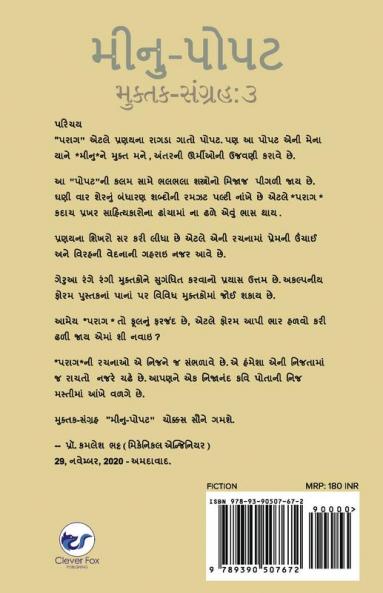 મીનુ-પોપટ
મુક્તક-સંગ્રહ:૩
પરિચય
"પરાગ" એટલે પ્રણયના રાગડા ગાતો પોપટ. પણ આ પોપટ એની મેના
યાને *મીનુ*ને મુક્ત મને , અંતરની ઊર્મીઓની ઉજવણી કરાવે છે.
આ "પોપટ"ની કલમ સામે ભલભલા શસ્ત્રોનો મિજાજ પીગળી જાય છે.
ઘણી વાર શેરનું બંધારણ શબ્દોની રમઝટ પલ્ટી નાંખે છે એટલે *પરાગ*
કદાચ પ્રખર સાહિત્યકારોના ઢાંચામાં ના ઢળે એવું ભાસ થાય .
પ્રણયના શિખરો સર કરી લીધા છે એટલે એની રચનામાં પ્રેમની ઉંચાઈ
અને વિરહની વેદનાની ગહરાઇ નજર આવે છે.
ગેરુઆ રંગે રંગી મુક્તકોને સુગંધિત કરવાનો પ્રયાસ ઉત્તમ છે. અકલ્પનીય
ફોરમ પુસ્તકનાં પાનાં પર વિવિધ મુક્તકોમાં જોઈ શકાય છે.
આમેય *પરાગ* તો ફૂલનું ફરજંદ છે, એટલે ફોરમ આપી ભાર હળવો કરી
ઢળી જાય એમાં શી નવાઇ ?
*પરાગ*ની રચનાઓ એ નિજને જ સંભળાવે છે. એ હંમેશા એની નિજતામાં
જ રાચતો નજરે ચઢે છે. આપણને એક નિજાનંદ કવિ પોતાની નિજ
મસ્તીમાં આંખે વળગે છે.
મુક્તક-સંગ્રહ "મીનુ-પોપટ" ચોક્કસ સૌને ગમશે.
-- પ્રૉ. કમલેશ ભટ્ટ ( મિકેનિકલ એન્જિનિયર )
29, નવેમ્બર, 2020 - અમદાવાદ.
FICTION
MRP: 180 INR
ISBN 978-93-90507-67-2
90000>
9 789390 507672
Clever Fox
PUBLISHING